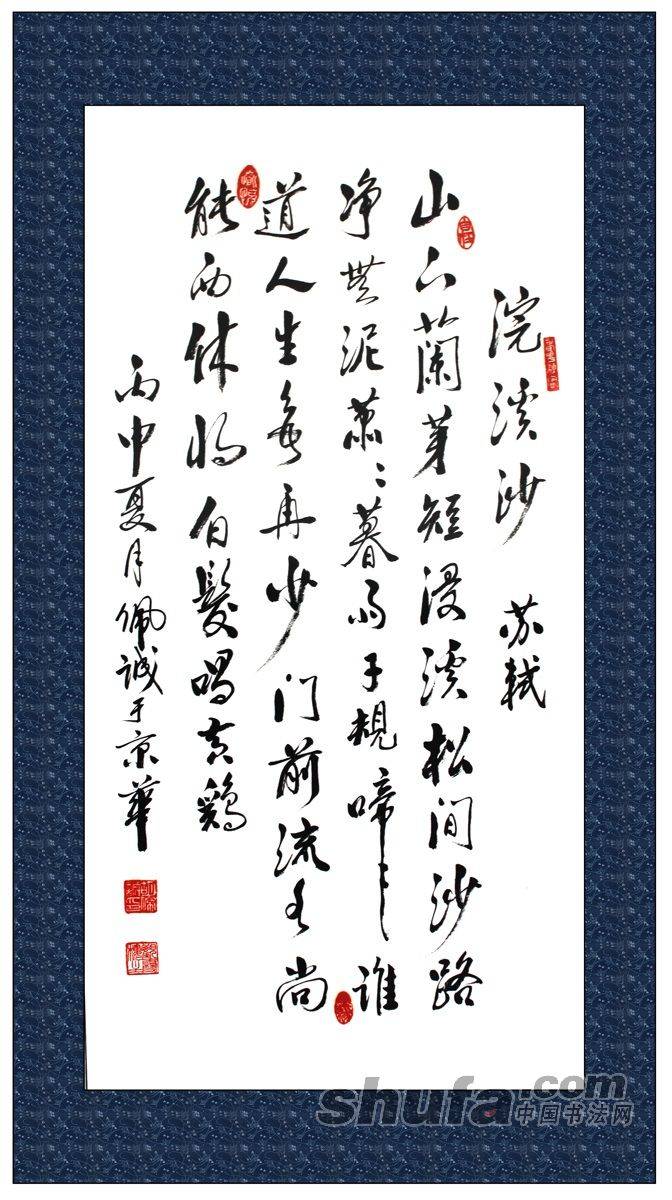 浣溪沙 苏轼
山下蘭芽短浸溪松间沙路
净無泥蕭〻暮雨子規啼谁
道人生無再少门前流水尚
能西休将白髮唱黄鷄
丙申夏月佩诚于京華
shufa.com
中国书法网